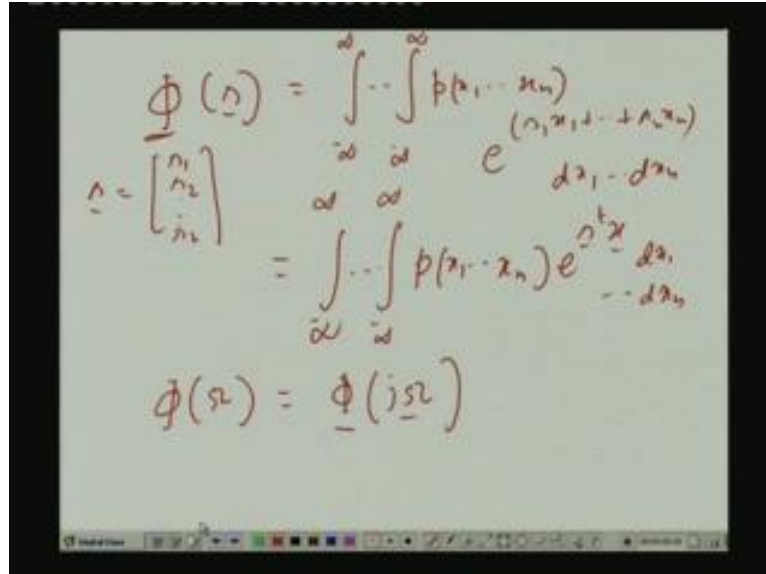 Φ(s) = ∫_{-∞}^{∞} ... ∫_{-∞}^{∞} p(x₁ ... xₙ) e^{(s₁x₁ + ... + sₙxₙ)} dx₁ ... dxₙ
s = [s₁ s₂ : s₂]
= ∫_{-∞}^{∞} ... ∫_{-∞}^{∞} p(x₁ ... xₙ) e^{sᵗx} dx₁ ... dxₙ
Φ(Ω) = Φ(jΩ)